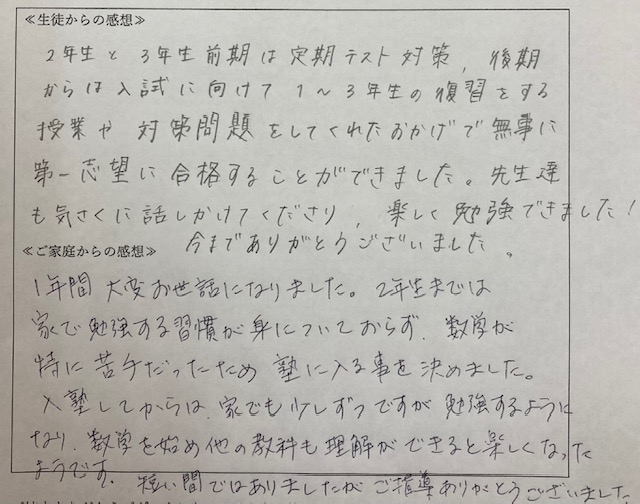 ≪生徒からの感想≫
2年生と3年生前期は定期テスト対策、後期
からは入試に向けて1～3年生の復習をする
授業や対策問題をしてくれたおかげで無事に
第一志望に合格することができました。先生達
も気さくに話しかけてくださり、楽しく勉強できました！
今までありがとうございました。
≪ご家庭からの感想≫
1年間大変お世話になりました。2年生までは
家で勉強する習慣が身についておらず、数学が
特に苦手だったため塾に入る事を決めました。
入塾してからは、家でも少しずつですが勉強するように
なり、数学を始め他の教科も理解ができると楽しくなった
ようです。短い間ではありましたがご指導ありがとうございました。